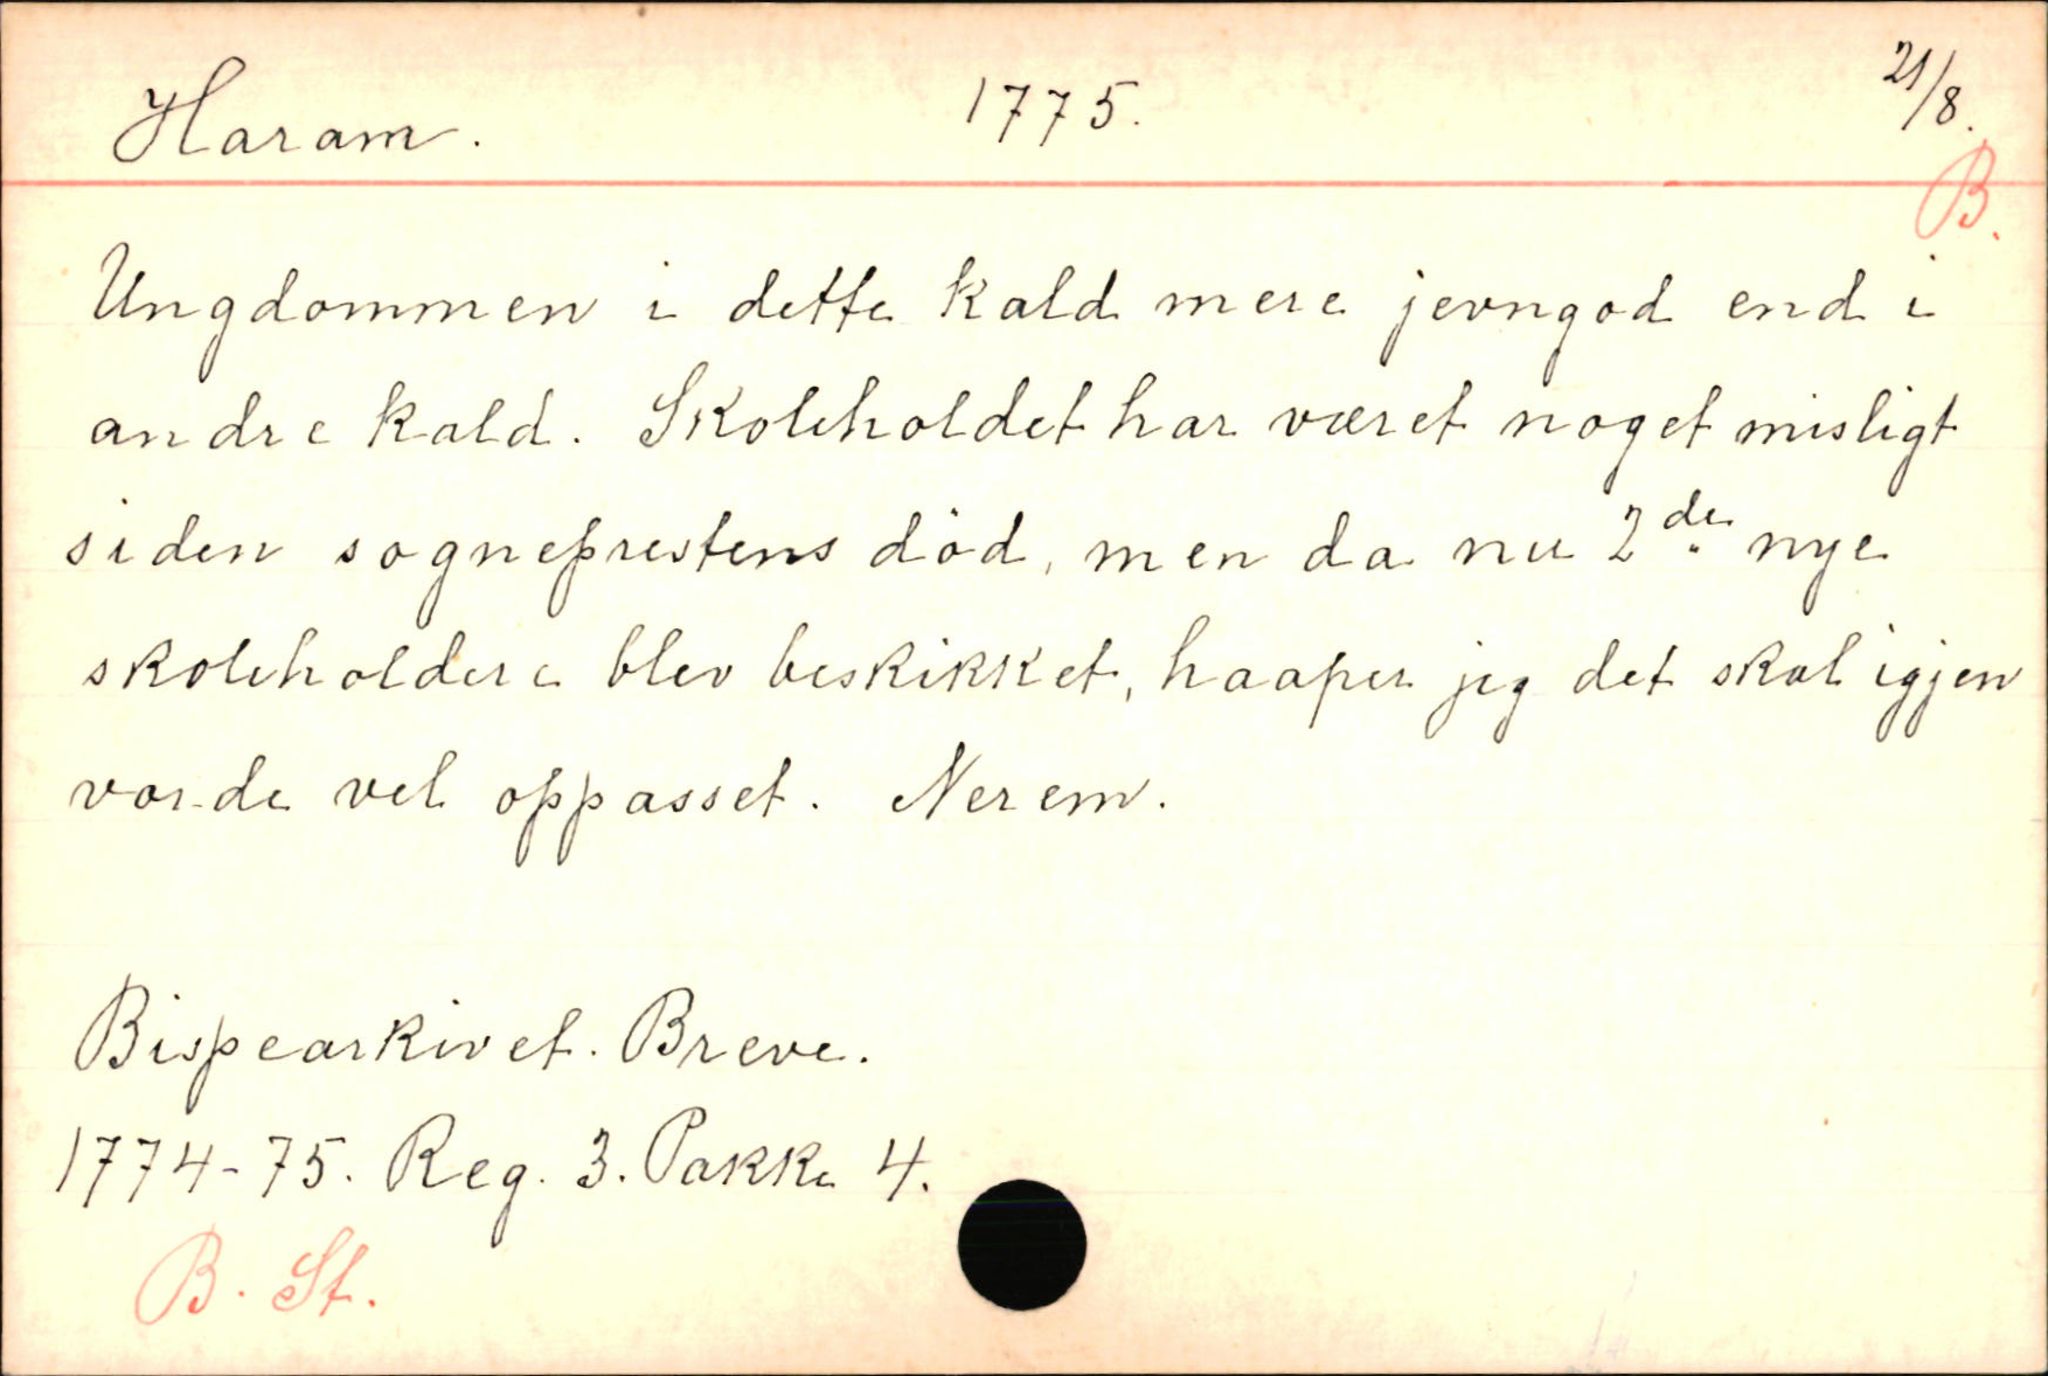 Haram. 1775. 21/8.
B.
Ungdommen i dette kald mere jevngod end i
andre kald. Skoleholdet har været noget misligt
siden sogneprestens död, men da nu 2de nye
skoleholdere blev beskikket, haaper jeg det skal igjen
vorde vel oppasset. Nerem.
Bispearkivet. Breve.
1774-75. Reg. 3. Pakke 4.
B. St.